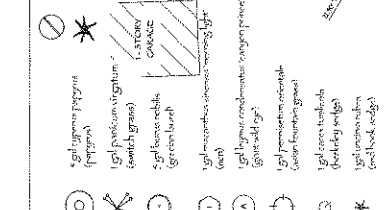 5 gal cyperus papyrus
(papyrus)
1 gal panicum virgatum
(switch grass)
5 gal laurus nobilis
(grecian laurel)
1 gal miscanthus sinensis 'morning light'
1 gal leymus condensatus 'canyon prince'
(giant wild rye)
1 gal pennisetum orientale
(asian fountain grass)
1 gal carex tumulicola
(berkeley sedge)
1 gal uncinia rubra
(red hook sedge)
1-STORY
GARAGE